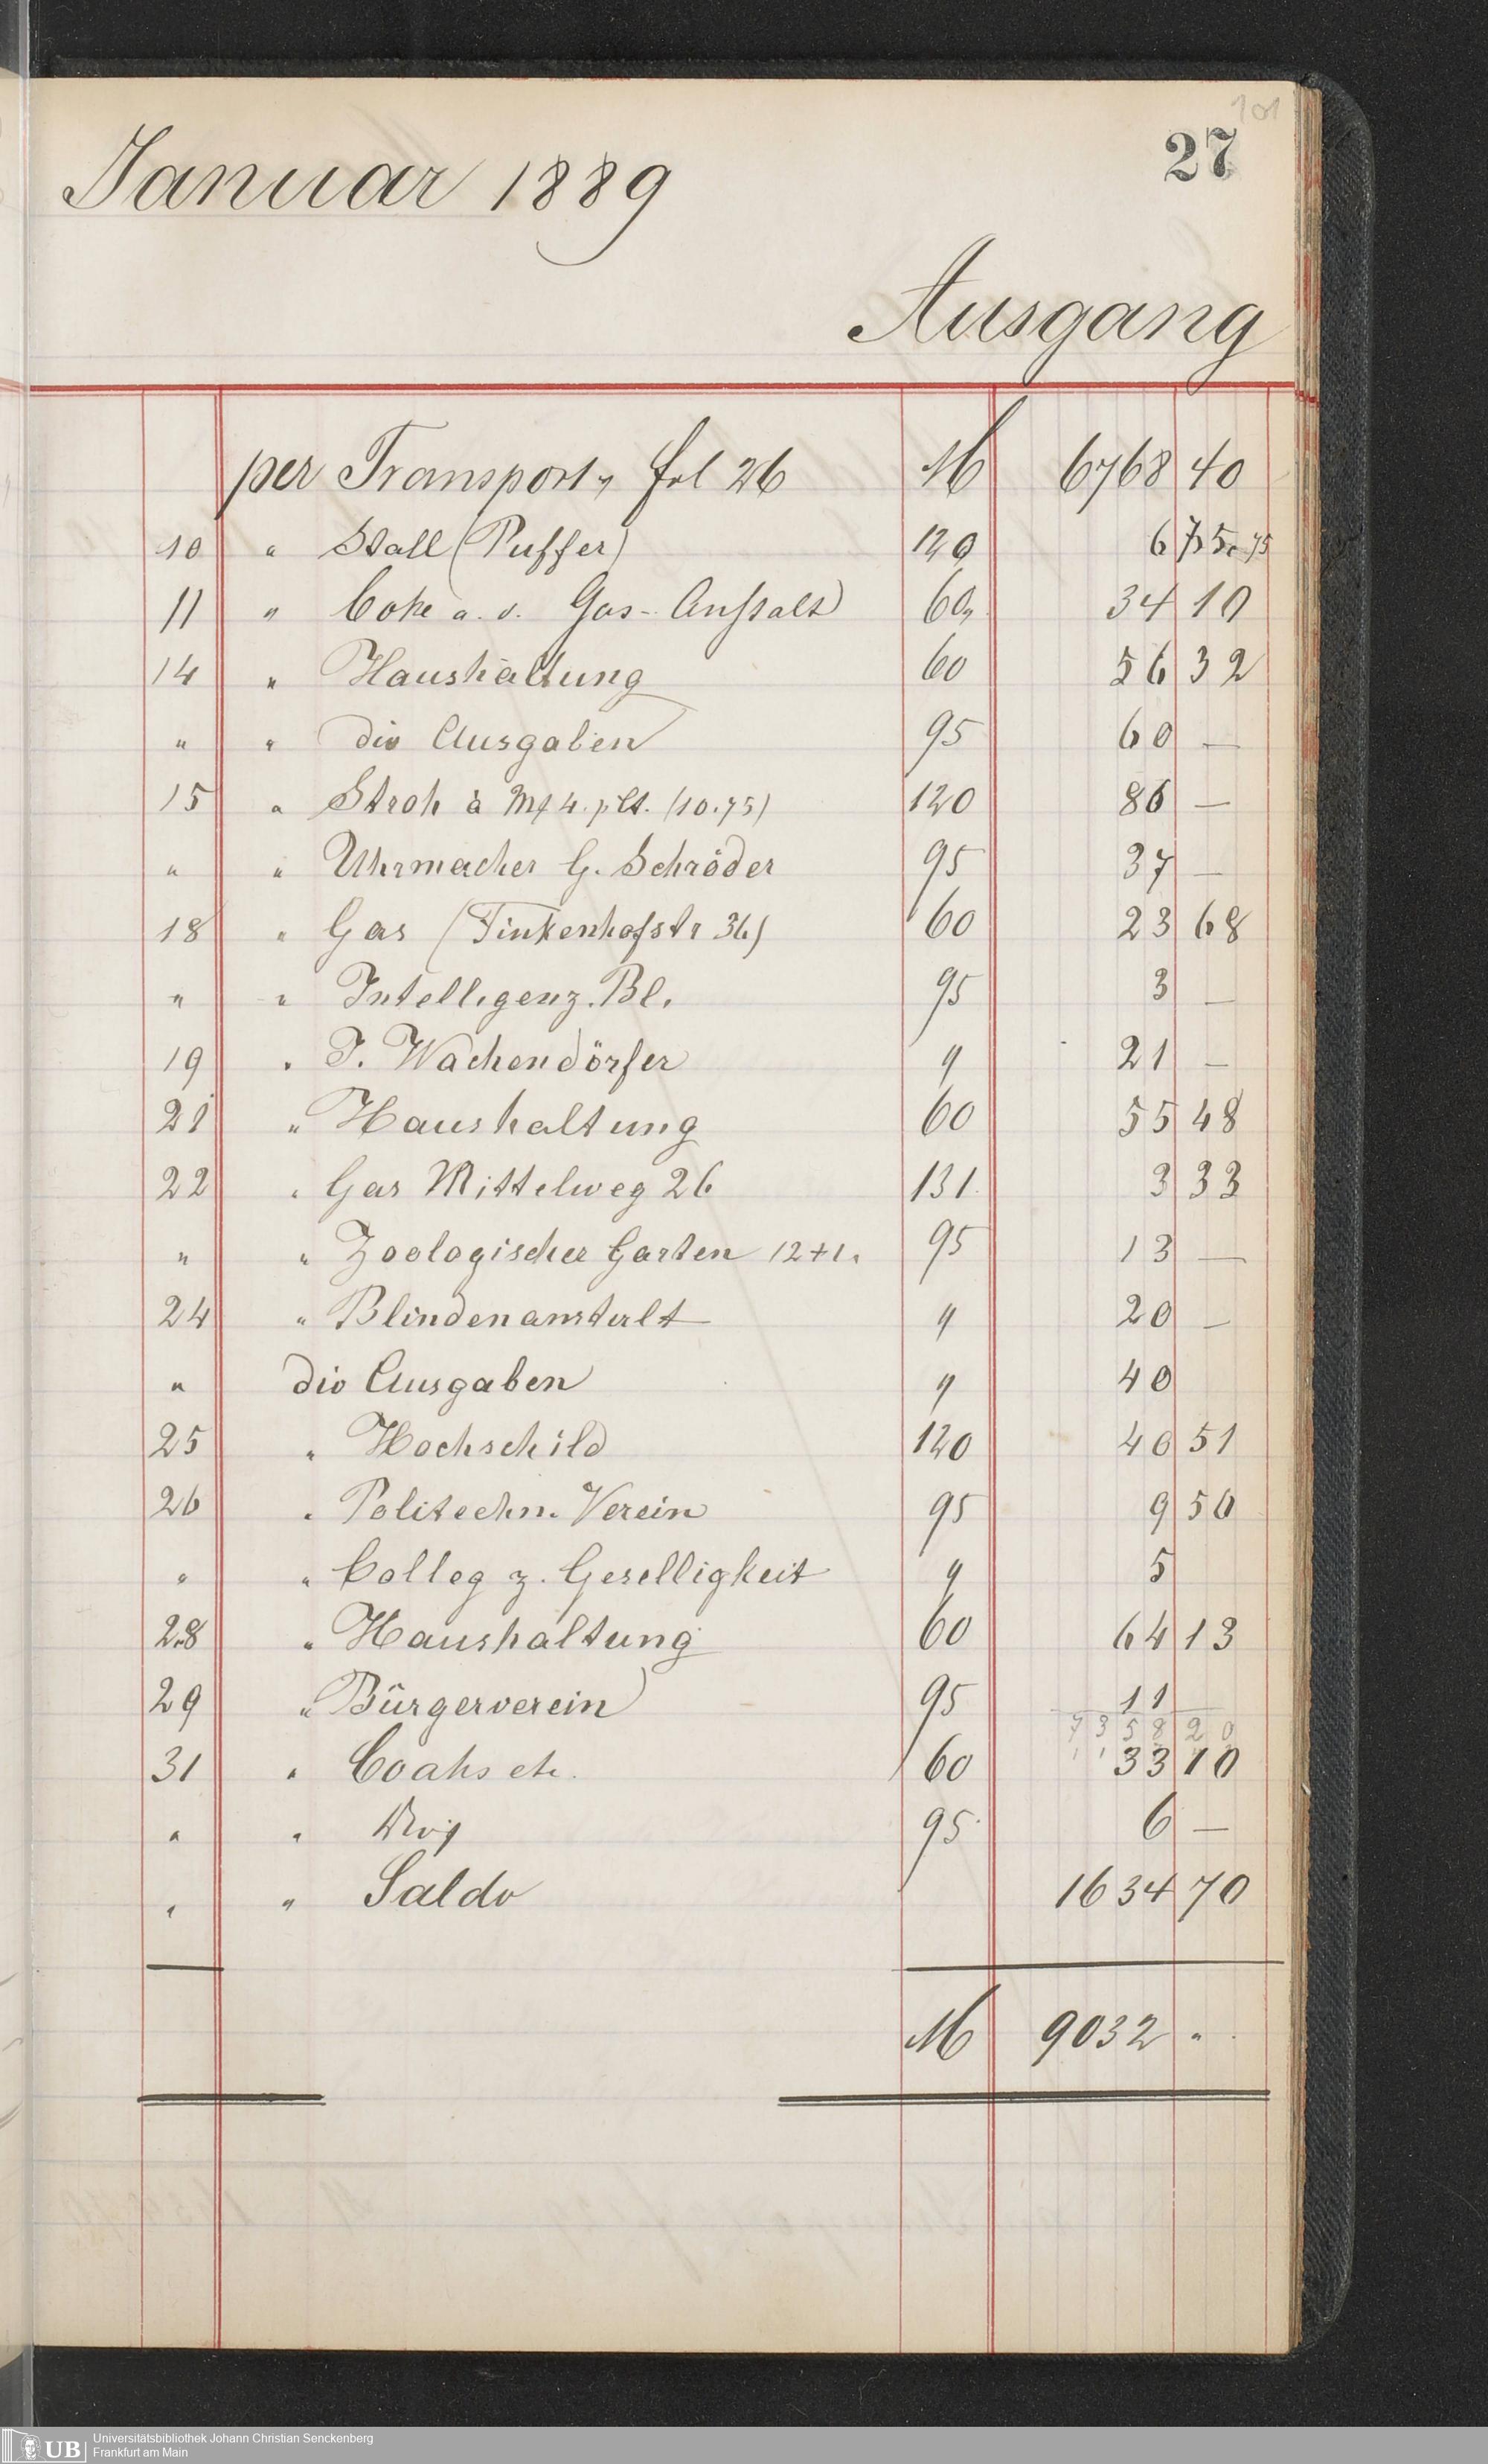 101
27
Januar 1889
Ausgang
per Transport, fol 26 M 6768 40
10 " Stall (Puffer) 120 6 75
11 " Coke a. d. Gas-Anstalt 60 34 10
14 " Haushaltung 60 56 32
" " div Ausgaben 95 60 —
15 " Stroh à M 4. p Ct. (10.75) 120 86 —
" " Uhrmacher G. Schröder 95 37 —
18 " Gas (Finkenhofstr 36) 60 23 68
" " Intelligenz. Bl. 95 3 —
19 " J. Wachendörfer " 21 —
21 " Haushaltung 60 55 48
22 " Gas Mittelweg 26 131 3 33
" " Zoologischer Garten 12+1. 95 13 —
24 " Blindenanstalt " 20 —
" div Ausgaben " 40
25 " Hochschild 120 40 51
26 " Politechn. Verein 95 9 50
" " Colleg z. Geselligkeit " 5
28 " Haushaltung 60 64 13
29 " Bürgerverein 95 11 —
7358 20
31 " Coaks etc. 60 33 10
" " 95 6 —
" " Saldo 1634 70
M 9032 "
UB Universitätsbibliothek Johann Christian Senckenberg
Frankfurt am Main